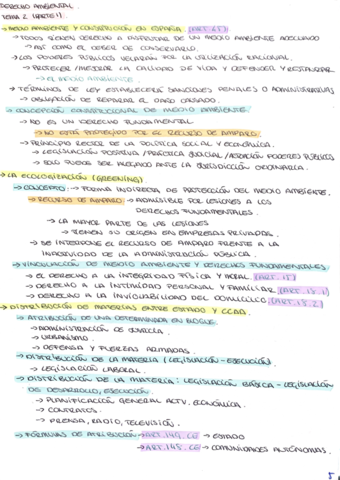 DERECHO AMBIENTAL.
TEMA 2 (PARTE I)
→ MEDIO AMBIENTE Y CONSTITUCIÓN EN ESPAÑA (ART.45)
→ TODOS TIENEN DERECHO A DISFRUTAR DE UN MEDIO AMBIENTE ADECUADO
→ ASÍ COMO EL DEBER DE CONSERVARLO.
→ LOS PODERES PÚBLICOS VELARÁN POR LA UTILIZACIÓN RACIONAL.
→ PROTEGER/MEJORAR LA CALIDAD DE VIDA Y DEFENDER Y RESTAURAR
→ EL MEDIO AMBIENTE
→ TÉRMINOS DE LEY ESTABLECERÁ SANCIONES PENALES O ADMINISTRATIVAS
→ OBLIGACIÓN DE REPARAR EL DAÑO CAUSADO.
→ CONCEPCIÓN CONSTITUCIONAL DE MEDIO AMBIENTE.
→ NO ES UN DERECHO FUNDAMENTAL
→ NO ESTÁ PROTEGIDO POR EL RECURSO DE AMPARO.
→ PRINCIPIO RECTOR DE LA POLÍTICA SOCIAL Y ECONÓMICA.
→ LEGISLACIÓN POSITIVA/PRÁCTICA JUDICIAL/ACTUACIÓN PODERES PÚBLICOS
→ SOLO PUEDE SER ALEGADO ANTE LA JURISDICCIÓN ORDINARIA.
→ LA ECOLOGIZACIÓN (GREENING)
→ CONCEPTO: → FORMA INDIRECTA DE PROTECCIÓN DEL MEDIO AMBIENTE.
→ RECURSO DE AMPARO → ADMISIBLE POR LESIONES A LOS
DERECHOS FUNDAMENTALES.
→ LA MAYOR PARTE DE LAS LESIONES
→ TIENEN SU ORIGEN EN EMPRESAS PRIVADAS.
→ SE INTERPONE EL RECURSO DE AMPARO FRENTE A LA
INACTIVIDAD DE LA ADMINISTRACIÓN PÚBLICA.
→ VINCULACIÓN DE MEDIO AMBIENTE Y DERECHOS FUNDAMENTALES
→ EL DERECHO A LA INTEGRIDAD FÍSICA Y MORAL (ART.15)
→ DERECHO A LA INTIMIDAD PERSONAL Y FAMILIAR (ART.18.1)
→ DERECHO A LA INVIOLABILIDAD DEL DOMICILIO (ART.18.2)
→ DISTRIBUCIÓN DE MATERIAS ENTRE ESTADO Y CCAA.
→ ATRIBUCIÓN DE UNA DETERMINADA EN BLOQUE.
→ ADMINISTRACIÓN DE JUSTICIA
→ URBANISMO
→ DEFENSA Y FUERZAS ARMADAS.
→ DISTRIBUCIÓN DE LA MATERIA (LEGISLACIÓN - EJECUCIÓN)
→ LEGISLACIÓN LABORAL.
→ DISTRIBUCIÓN DE LA MATERIA: LEGISLACIÓN BÁSICA - LEGISLACIÓN
DE DESARROLLO, EJECUCIÓN
→ PLANIFICACIÓN GENERAL ACTV. ECONÓMICA.
→ CONTRATOS.
→ PRENSA, RADIO, TELEVISIÓN.
→ FÓRMULAS DE ATRIBUCIÓN → ART.149 CE → ESTADO
→ ART.148 CE → COMUNIDADES AUTÓNOMAS.